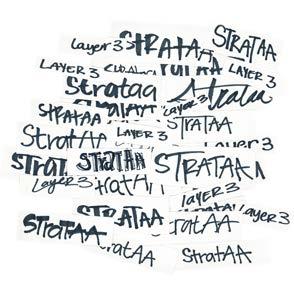 Layer 3 STRATAA STRATAA
LAYER 3 LAYER 3
Strataa Strataa
STRATAA LAYER 3
StratAA LAYER 3 STRATAA
Strat STRATAA STRATAA
Layer 3 StratAA LAYER 3
STRATAA STRATAA LAYER 3
StratAA